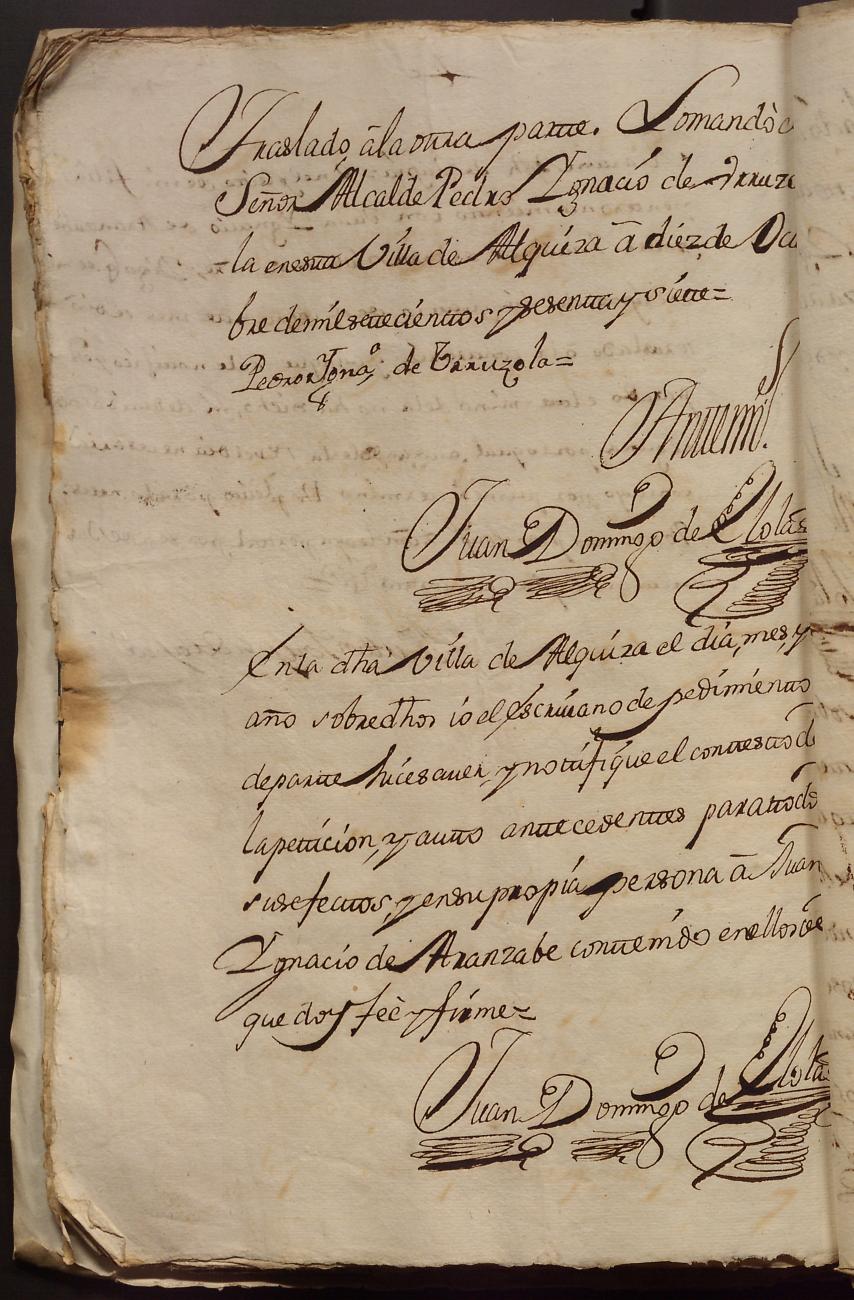 Traslado, â la otra parte. Lomandò
Señor Alcalde Pedro Ygnacio de Yrruzo
la enesta Villa de Alquiza â diez de Octu
bre de mil setecientos y sesenta y siete=
Pedro Ygnaº de Yrruzola=
Antemi.
Juan Domingo de
En la dha Villa de Alquiza el dia, mes, y
año sobredhos io el Escrivano de pedimiento
de parte hice saver, y notifiqúe el contexto d
la peticion, y auto antecedentes para todos
sus efectos, y en su propia persona â Juan
Ygnacio de Aranzabe contenido en ellos
que doy feè y firme=
Juan Domingo de